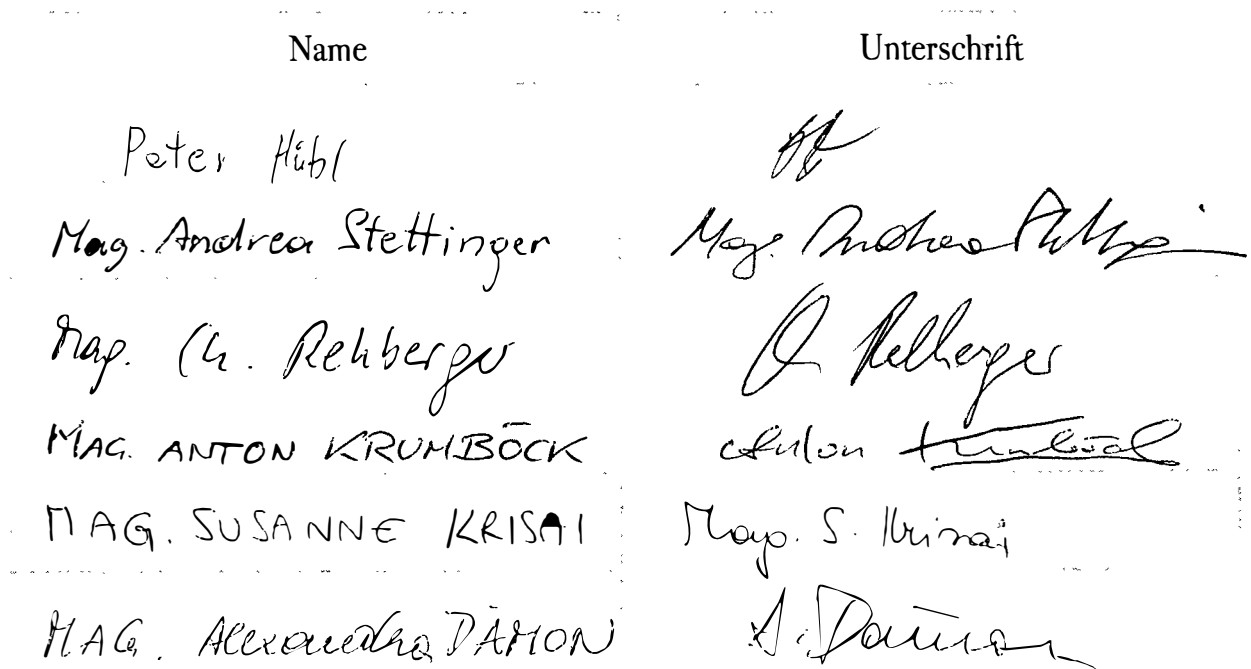 Name Unterschrift
Peter Hübl
Mag. Andrea Stettinger Mag. Andrea Stettinger
Mag. Ch. Rehberger Ch. Rehberger
MAG. ANTON KRUMBÖCK Anton Krumböck
MAG. SUSANNE KRISAI Mag. S. Krisai
MAG. Alexandra DÄMON A. Dämon